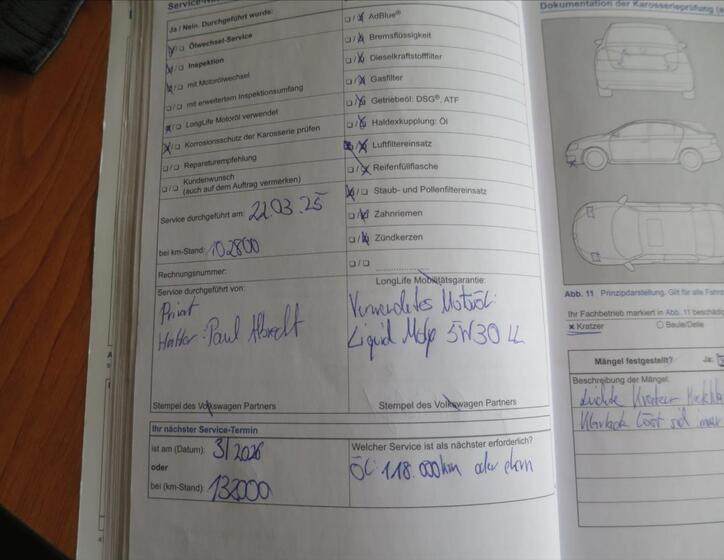 Service-
Ja / Nein. Durchgeführt wurde:
Ölwechsel-Service
Inspektion
mit Motorölwechsel
mit erweitertem Inspektionsumfang
LongLife Motoröl verwendet
Korrosionsschutz der Karosserie prüfen
Reparaturempfehlung
Kundenwunsch
(auch auf dem Auftrag vermerken)
Service durchgeführt am: 22.03.25
bei km-Stand: 102800
Rechnungsnummer:
Service durchgeführt von:
Privat
Halter: Paul Albrecht
Stempel des Volkswagen Partners
AdBlue®
Bremsflüssigkeit
Dieselkraftstofffilter
Gasfilter
Getriebeöl: DSG®, ATF
Haldexkupplung: Öl
Luftfiltereinsatz
Reifenfüllflasche
Staub- und Pollenfiltereinsatz
Zahnriemen
Zündkerzen
LongLife Mobilitätsgarantie:
Verwendetes Motoröl:
Liquid Moly 5W30 LL
Stempel des Volkswagen Partners
Ihr nächster Service-Termin
ist am (Datum): 3/2026
oder
bei (km-Stand): 132000
Welcher Service ist als nächster erforderlich?
Öl 118.000km oder
Dokumentation der Karosserieprüfung
Abb. 11 Prinzipdarstellung. Gilt für alle
Ihr Fachbetrieb markiert in Abb. 11
Kratzer
Beule/Delle
Mängel festgestellt? Ja:
Beschreibung der Mängel:
Leichte Kratzer
Klarlack löst sich